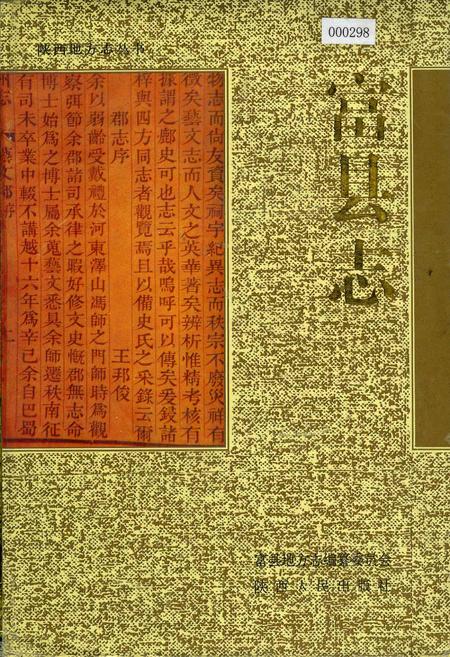 陕西地方志丛书
000298
富县志
物志而尚友資矣祠宇紀異志而秩宗不廢災祥有
徵矣藝文志而人文之英華著矣辨析惟精考核有
據謂之鄜史可也志云乎哉嗚呼可以傳矣爰鋟諸
梓與四方同志者觀覽焉且以備史氏之采錄云爾
郡志序
王邦俊
余以弱齡受戴禮於河東澤山馮師之門師時為觀
察弭節余郡諸司承律之暇好修文史慨郡無志命
博士始為之博士屬余蒐藝文悉具余師遷秩南征
有司未卒業中輟不講越十六年為辛巳余自巴蜀
富县地方志编纂委员会
陕西人民出版社